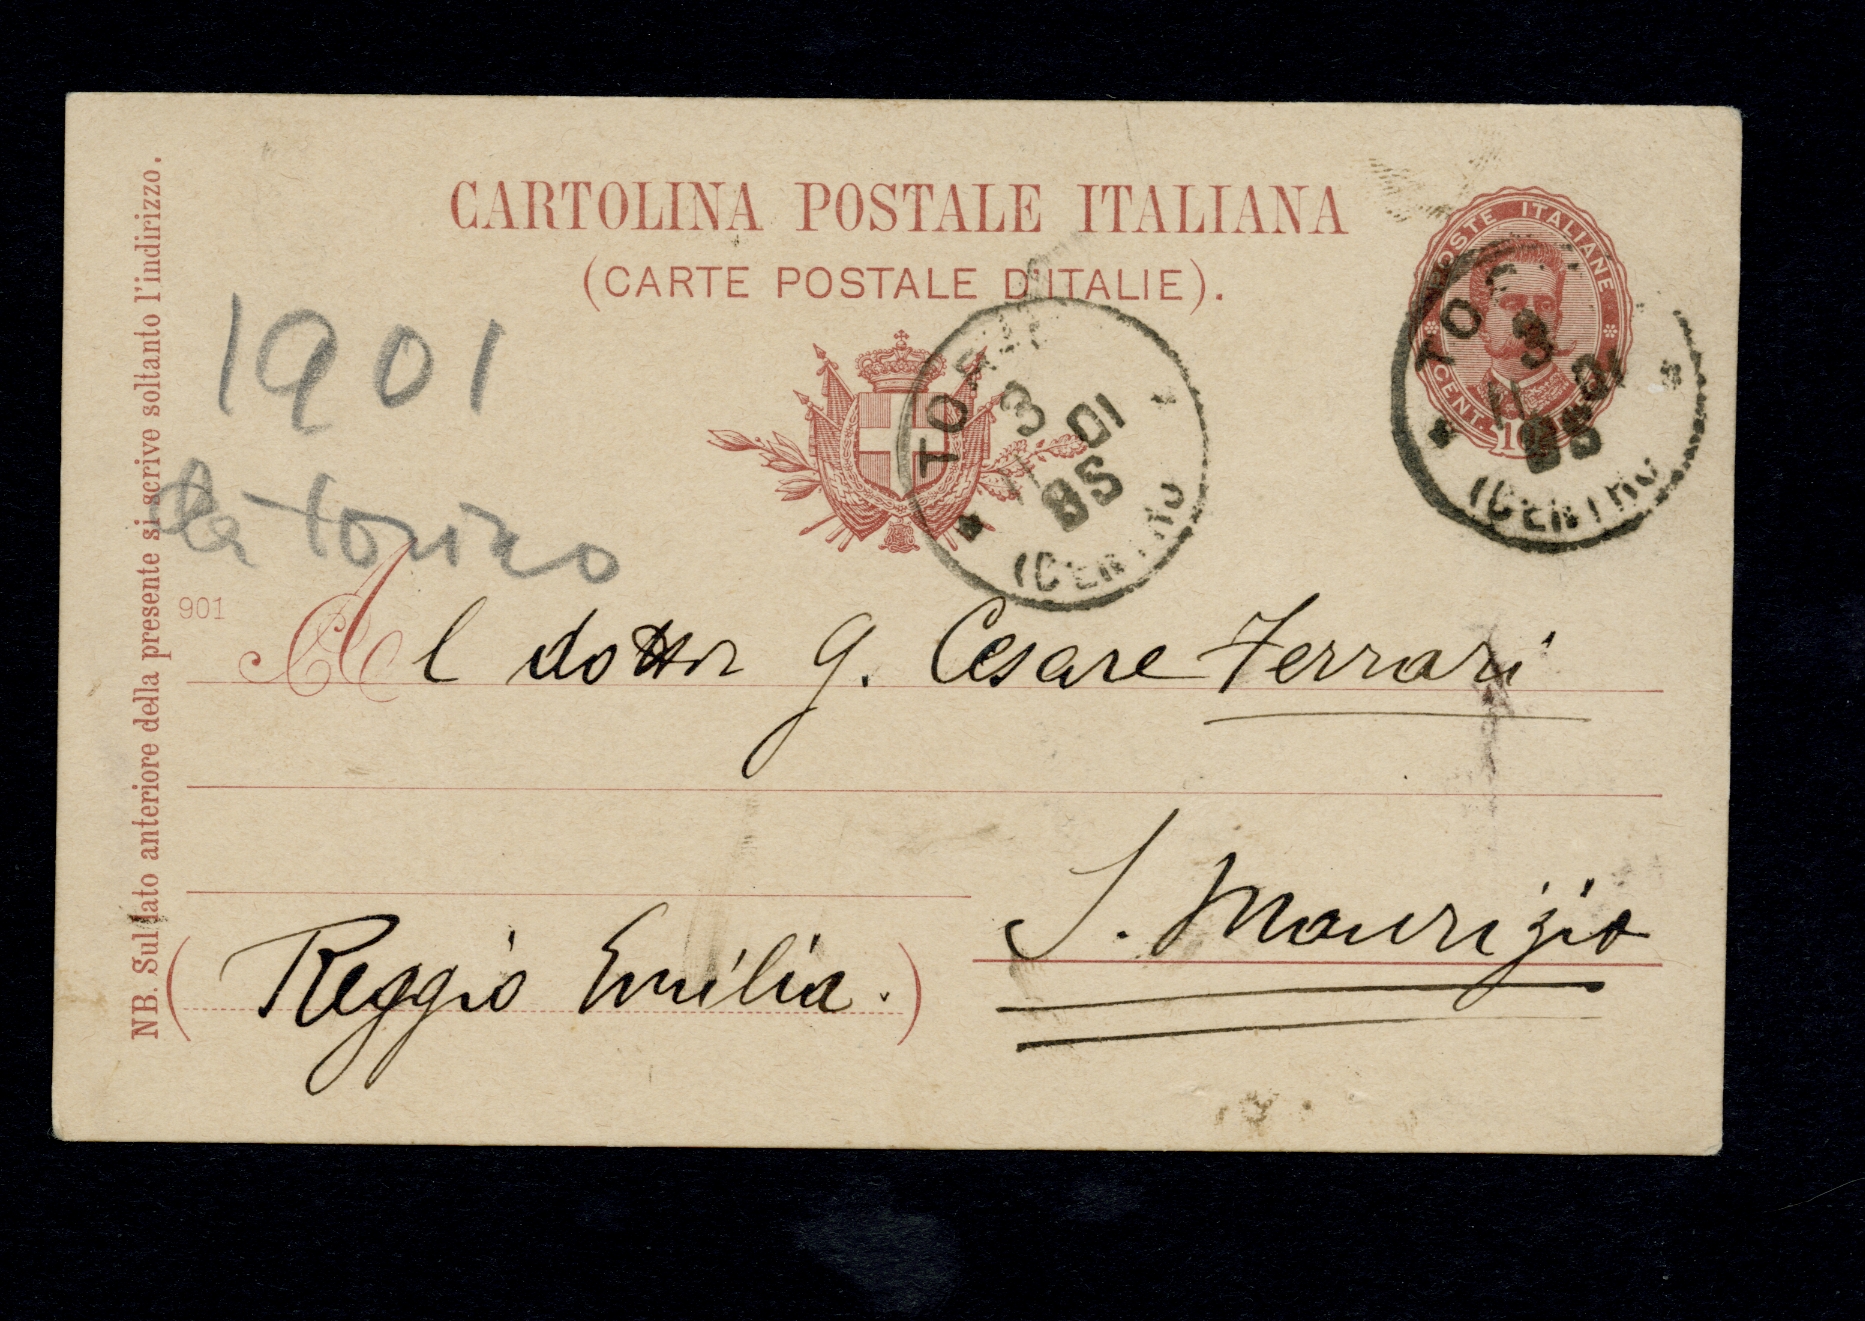 CARTOLINA POSTALE ITALIANA
(CARTE POSTALE D'ITALIE).
POSTE ITALIANE
CENT.
TO
3
11 01
8S
(CENTRO
TO
3
11 01
8S
(CENTRO
1901
da Torino
901
Al dottor G. Cesare Ferrari
S. Maurizio
(Reggio Emilia.)
NB. Sul lato anteriore della presente si scrive soltanto l'indirizzo.